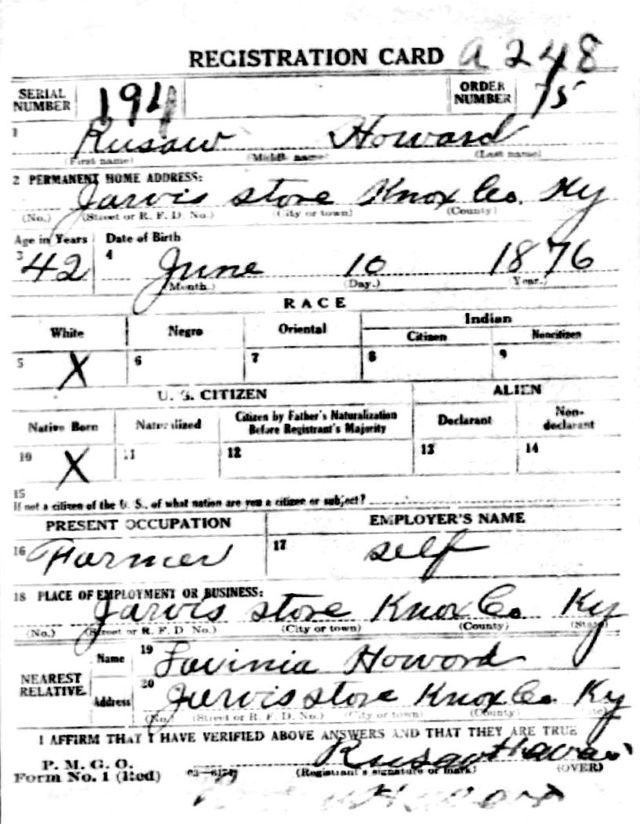 REGISTRATION CARD a 248
SERIAL NUMBER 191 ORDER NUMBER 75
1 Rusaw Howard
(First name) (Middle name) (Last name)
2 PERMANENT HOME ADDRESS:
Jarvis Store Knox Co. Ky
(No.) (Street or R. F. D. No.) (City or town) (County)
Age in Years Date of Birth
3 42 4 June 10 1876
(Month.) (Day.) (Year.)
RACE
White Negro Oriental Indian
Citizen Noncitizen
5 X 6 7 8 9
U. S. CITIZEN ALIEN
Native Born Naturalized Citizen by Father's Naturalization Before Registrant's Majority Declarant Non-declarant
10 X 11 12 13 14
15
If not a citizen of the U. S., of what nation are you a citizen or subject?
PRESENT OCCUPATION EMPLOYER'S NAME
16 Farmer 17 self
18 PLACE OF EMPLOYMENT OR BUSINESS:
Jarvis Store Knox Co Ky
(No.) (Street or R. F. D. No.) (City or town) (County) (State)
NEAREST RELATIVE Name 19 Lavinia Howard
Address 20 Jarvis Store Knox Co. Ky
(No.) (Street or R. F. D. No.) (City or town) (County)
I AFFIRM THAT I HAVE VERIFIED ABOVE ANSWERS AND THAT THEY ARE TRUE
P. M. G. O.
Form No. 1 (Red) Rusaw Howard
(Registrant's signature or mark) (OVER)